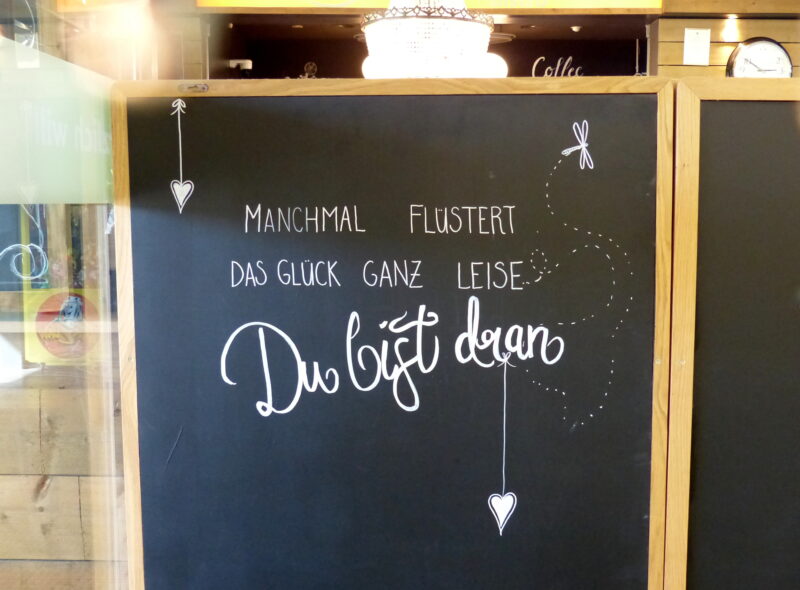 Coffee
MANCHMAL FLÜSTERT
DAS GLÜCK GANZ LEISE
Du bist dran